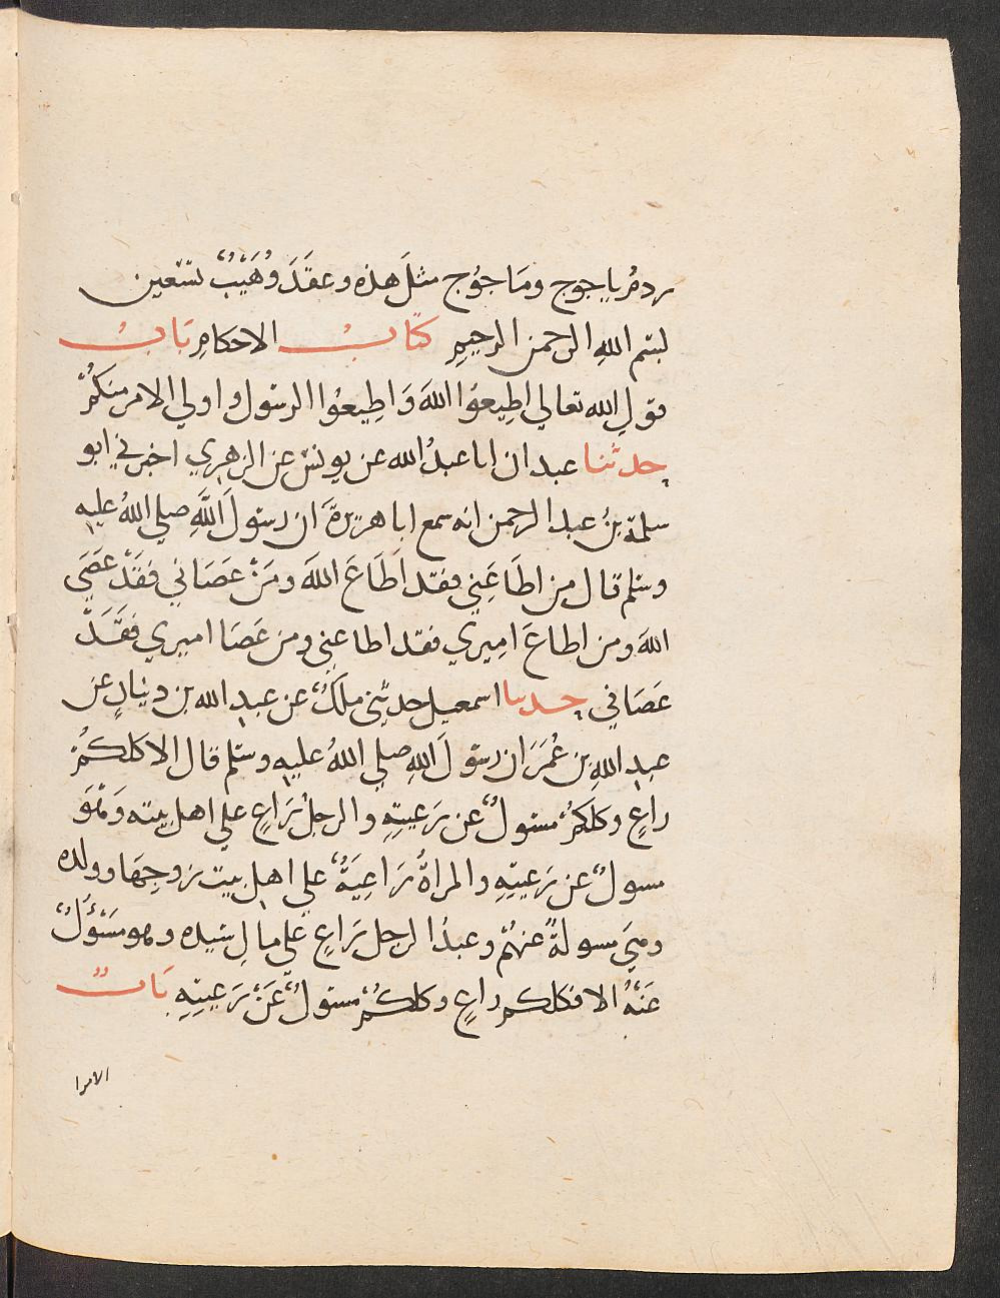 ردمُ ياجوج ومَاجوُج مثلَ هذه وعقَدَ وُهَيْبٌ تسْعين
بسم اللهِ الرحمن الرحيمِ كتابُ الاحكامِ بَابُ
قولِ الله تعالي اطِيعوُا اللهَ وَاطِيعوُا الرسول واولي الامر منكُمْ
حدثنا عبدان انا عبدُ الله عن يونس عن الزهري اخبرني ابو
سلمةَ بنُ عبد الرحمن انه سمع ابا هريرةَ ان رسولَ اللَّهِ صلي اللهُ عليه
وسلم قال من اطَاعَنِي فقد اَطَاعَ اللهَ ومَنْ عَصَاني فقَدْ عَصَي
اللهَ ومن اطاعَ امِيري فقد اطاعني ومن عَصَا اميري فقَدْ
عَصَاني حدثنا اسمعيل حدثني ملكٌ عن عبدِ الله بن دينارٍ عن
عبدِ اللهِ بن عُمَرَ ان رسولَ اللهِ صلي اللهُ عليه وسلم قال الا كلكُمْ
راعٍ وكلكمُ مسولٌ عن رَعيتِهِ والرجلُ رَاعٍ علي اهل بيته وَهُوَ
مسولٌ عن رَعيتِهِ والمراةُ رَاعِيَةٌ علي اهل بيت زوجِهَا وولده
وهيَ مسولةٌ عنهُمْ وعبدُ الرجل رَاعٍ عَلي مالِ سَيده وهو مَسْؤُلٌ
عَنْهُ الا فكلكم راعٍ وكلكُمْ مسولٌ عَنْ رَعيتِهِ بَابٌ
الامرا